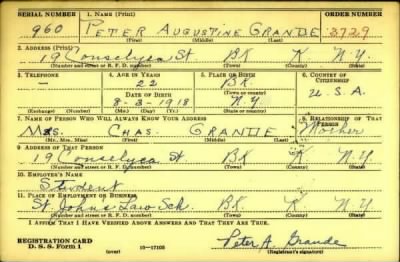 SERIAL NUMBER 1. NAME (Print) ORDER NUMBER
960 PETER AUGUSTINE GRANDE 3729
(First) (Middle) (Last)
2. ADDRESS (Print)
19 Conselyea St BK K N.Y.
(Number and street or R. F. D. number) (Town) (County) (State)
3. TELEPHONE 4. AGE IN YEARS 5. PLACE OF BIRTH 6. COUNTRY OF CITIZENSHIP
— 22 BK.
DATE OF BIRTH (Town or county)
8-3-1918 N.Y. U.S.A
(Exchange) (Number) (Mo.) (Day) (Yr.) (State or country)
7. NAME OF PERSON WHO WILL ALWAYS KNOW YOUR ADDRESS 8. RELATIONSHIP OF THAT PERSON
MRS. CHAS. GRANDE Mother
(Mr., Mrs., Miss) (First) (Middle) (Last)
9. ADDRESS OF THAT PERSON
19 Conselyea St. BK K N.Y.
(Number and street or R. F. D. number) (Town) (County) (State)
10. EMPLOYER'S NAME
Student
11. PLACE OF EMPLOYMENT OR BUSINESS
St. Johns Law Sch. BK K N.Y.
(Number and street or R. F. D. number) (Town) (County) (State)
I AFFIRM THAT I HAVE VERIFIED ABOVE ANSWERS AND THAT THEY ARE TRUE.
REGISTRATION CARD
D. S. S. Form 1 (over) 16—17105 Peter A. Grande
(Registrant's signature)